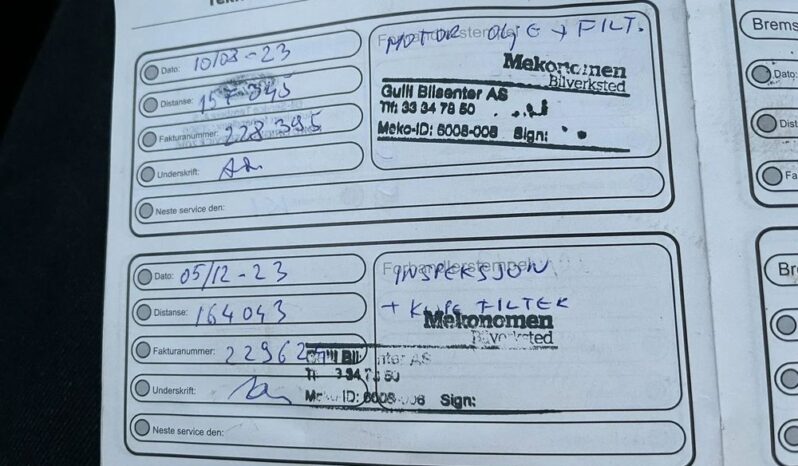 Dato: 10/03-23
Distanse:
Fakturanummer: 228395
Underskrift:
Neste service den:
MOTOR OLJE + FILT.
Forhandlerstempel
Mekonomen
Bilverksted
Gulli Bilsenter AS
Tlf: 33 34 78 50
Meko-ID: 6008-008 Sign:
Dato: 05/12-23
Distanse: 164043
Fakturanummer: 22962
Underskrift:
Neste service den:
Forhandlerstempel
INSPEKSJON
+ KUPE FILTER
Mekonomen
Bilverksted
Gulli Bil enter AS
Tl 3 34 78 50
Meko-ID: 6008-008 Sign:
Brems
Dato:
Dist
Fa
Br